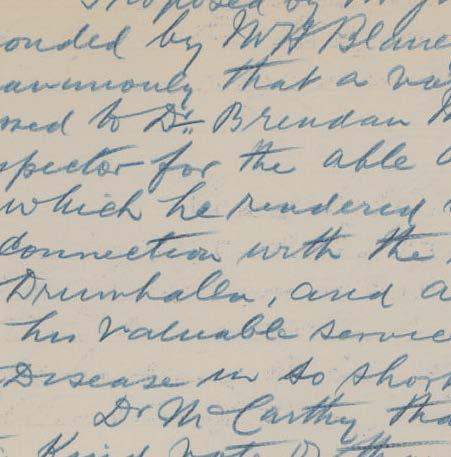 Proposed by Mr
onded by Mr H Blaney
animously that a vo
ssed to Dr. Brendan M
spector for the able a
which he rendered
connection with the
Drumhallen, and a
his valuable service
Disease in so short
Dr McCarthy tha
Kind vote of than